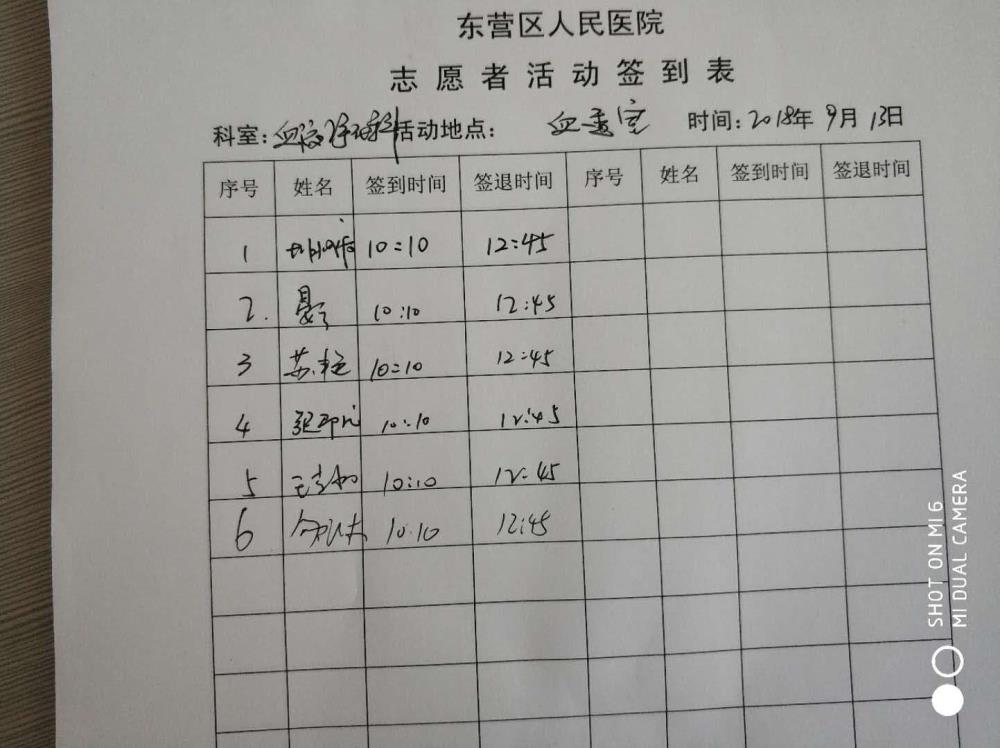 东营区人民医院
志愿者活动签到表
科室:血液净化科 活动地点: 血透室 时间:2018年 9月 13日
序号 姓名 签到时间 签退时间 序号 姓名 签到时间 签退时间
1 10:10 12:45
2. 10:10 12:45
3 苏艳 10:10 12:45
4 10:10 12:45
5 10:10 12:45
6 10:10 12:45
SHOT ON MI 6
MI DUAL CAMERA